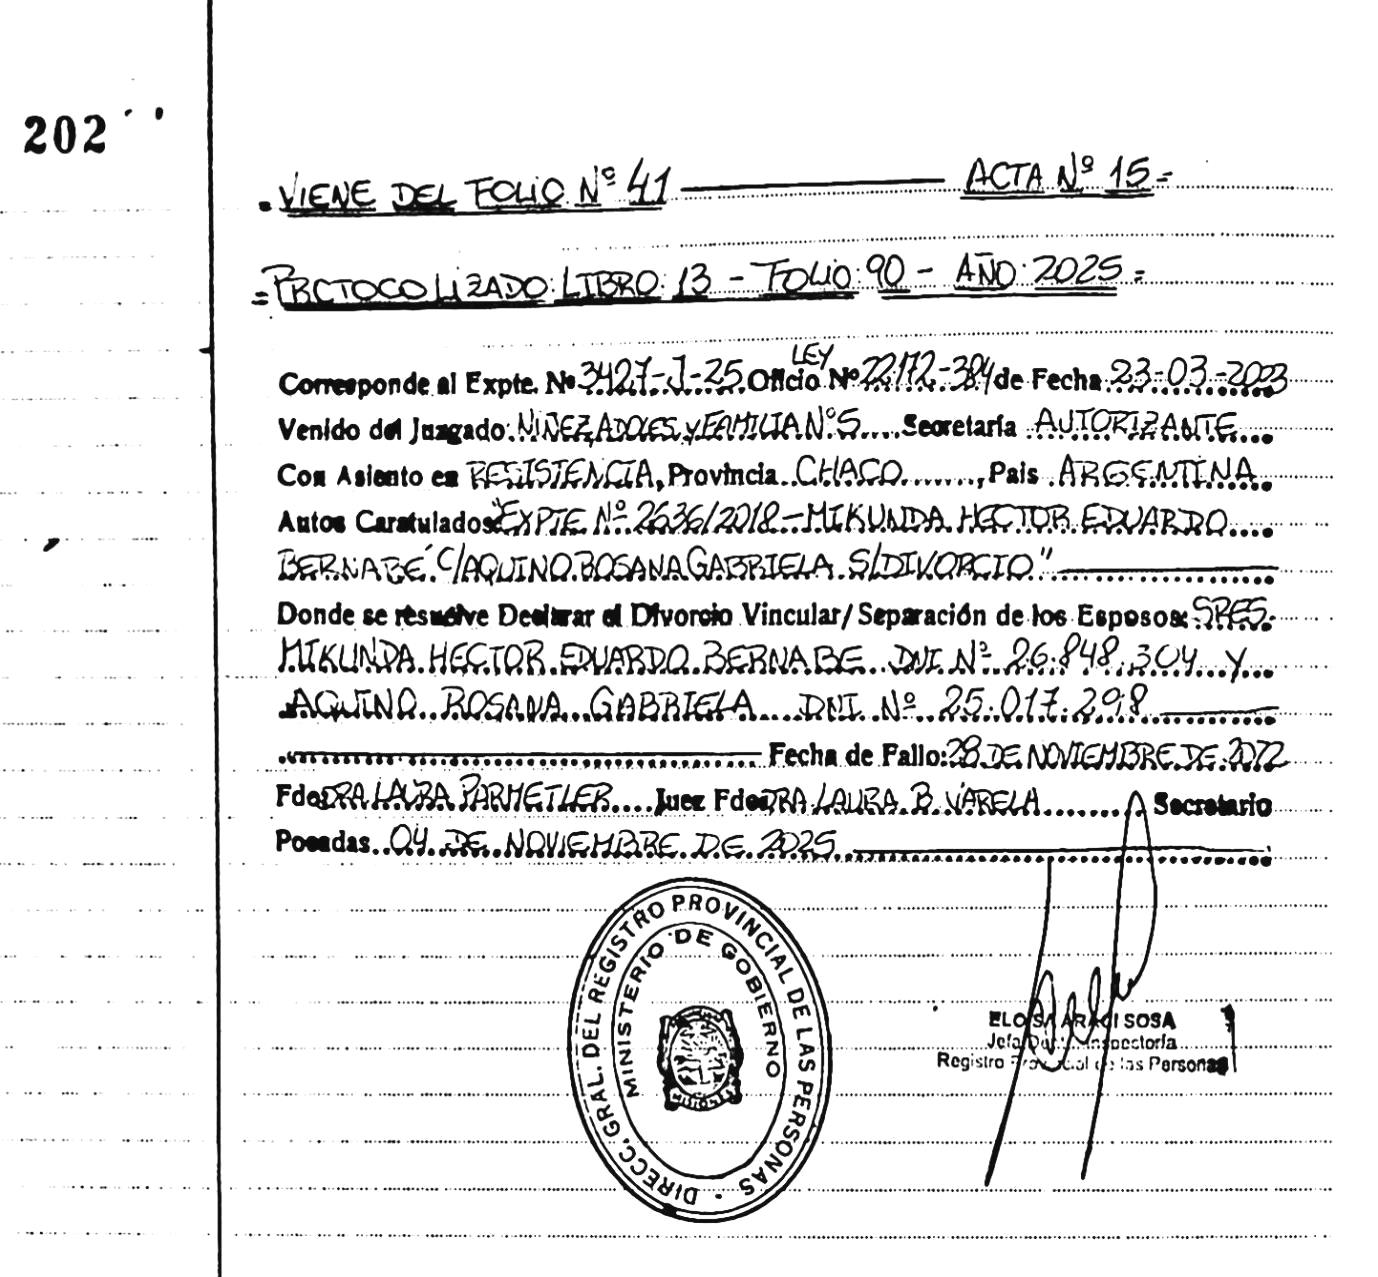 202
VIENE DEL FOLIO Nº 41 ACTA Nº 15
PROTOCOLIZADO: LIBRO: 13 - FOLIO: 90 - AÑO: 2025
Corresponde al Expte. Nº 3427-J-25 Oficio LEY Nº 22172-384 de Fecha 23-03-2023
Venido del Juzgado: NIÑEZ, ADOLES. y FAMILIA Nº 5 Secretaría AUTORIZANTE
Con Asiento en RESISTENCIA, Provincia CHACO, Pais ARGENTINA
Autos Caratulados: "EXPTE Nº 2636/2018 - MIKUNDA HECTOR EDUARDO
BERNABE C/AQUINO ROSANA GABRIELA S/DIVORCIO"
Donde se resuelve Declarar el Divorcio Vincular/Separación de los Esposos: SRES.
MIKUNDA HECTOR EDUARDO BERNABE DNI Nº 26.848.304 Y
AQUINO ROSANA GABRIELA DNI Nº 25.017.298
Fecha de Fallo: 28 DE NOVIEMBRE DE 2022
Fdo: DRA LAURA PARMETLER Juez Fdo: DRA LAURA B. VARELA Secretario
Posadas 04 DE NOVIEMBRE DE 2025
DIRECC. GRAL. DEL REGISTRO PROVINCIAL DE LAS PERSONAS
MINISTERIO DE GOBIERNO
ELOISA ARACI SOSA
Jefa Inspectoría
Registro Provincial de las Personas